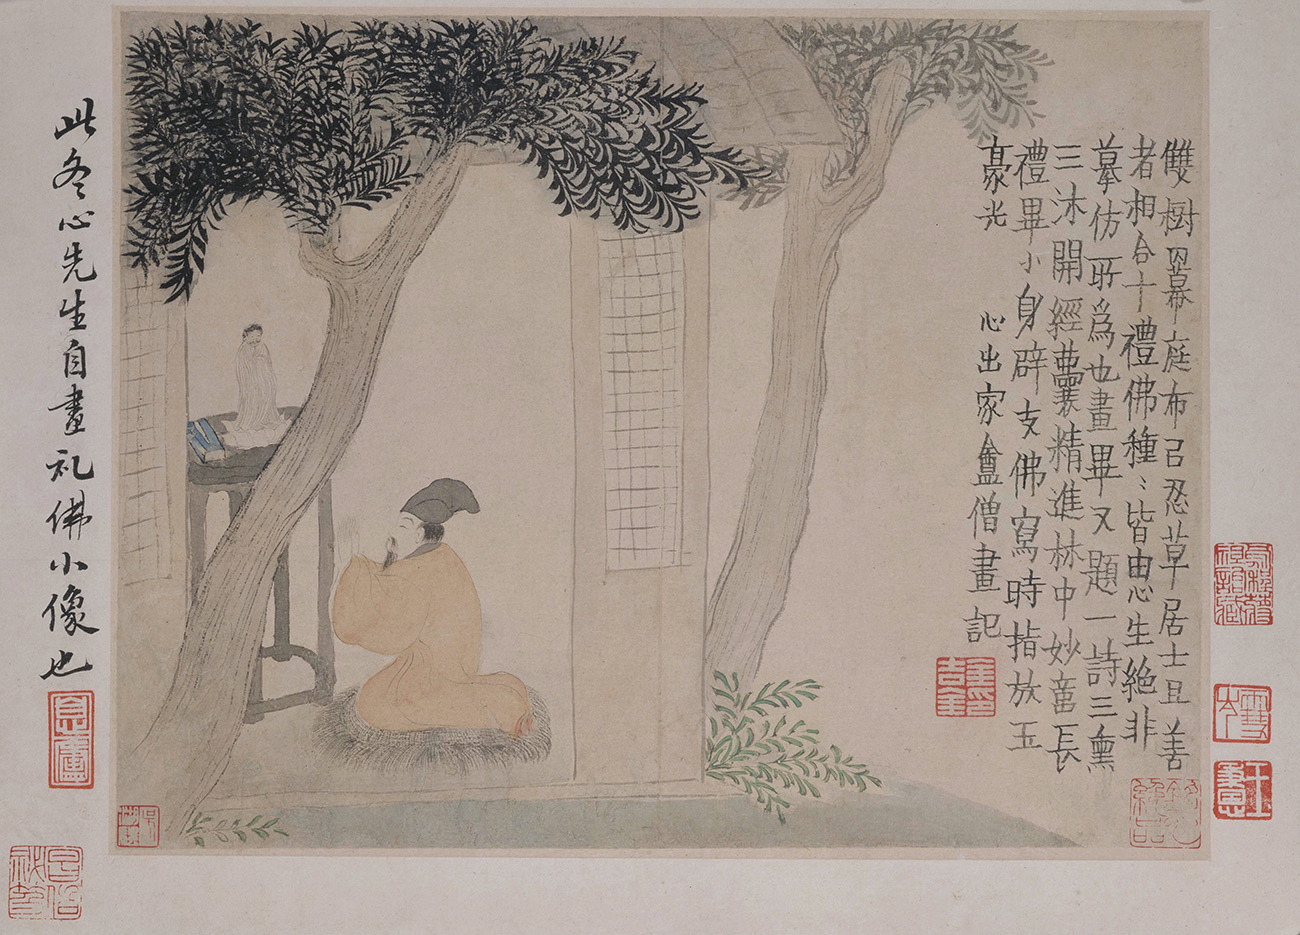 雙樹幕庭布㠯忍草居士且善
者相合十禮佛種〻皆由心生絶非
摹仿所爲也畫畢又題一詩三熏
三沐開經囊精進林中妙啻長
禮畢小身辟支佛寫時指放玉
豪光
心出家盦僧畫記
此冬心先生自畫礼佛小像也